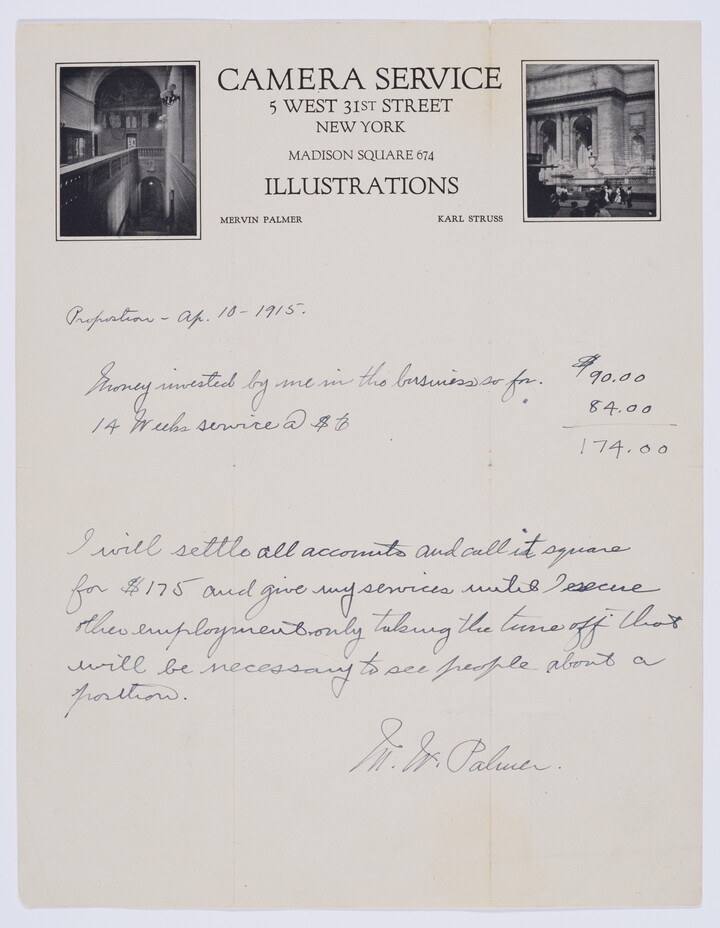 CAMERA SERVICE
5 WEST 31ST STREET
NEW YORK
MADISON SQUARE 674
ILLUSTRATIONS
MERVIN PALMER KARL STRUSS
Propostion - Ap. 10 - 1915.
Money invested by me in the business so far. $90.00
14 Weeks service @ $6 84.00
174.00
I will settle all accounts and call it square
for $175 and give my services until I secure
other employment only taking the time off that
will be necessary to see people about a
position.
M. W. Palmer.